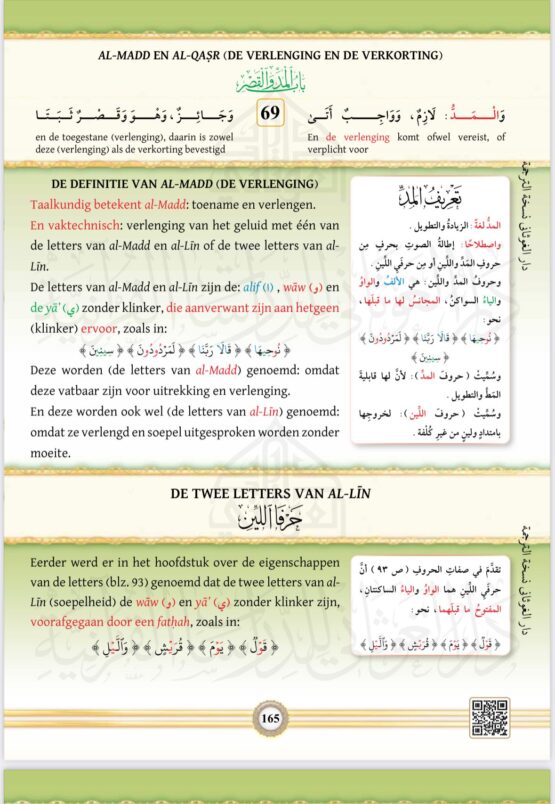 AL-MADD EN AL-QAṢR (DE VERLENGING EN DE VERKORTING)
بَابُ المَدِّ وَالقَصْرِ
وَالْمَدُّ: لَازِمٌ، وَوَاجِبٌ أَتَىٰ
69
وَجَائِزٌ، وَهْوَ وَقَصْرٌ ثَبَتَا
En de verlenging komt ofwel vereist, of
verplicht voor
en de toegestane (verlenging), daarin is zowel
deze (verlenging) als de verkorting bevestigd
DE DEFINITIE VAN AL-MADD (DE VERLENGING)
Taalkundig betekent al-Madd: toename en verlengen.
En vaktechnisch: verlenging van het geluid met één van
de letters van al-Madd en al-Līn of de twee letters van al-
Līn.
De letters van al-Madd en al-Līn zijn de: alif (ا) , wāw (و) en
de yāʾ (ي) zonder klinker, die aanverwant zijn aan hetgeen
(klinker) ervoor, zoals in:
﴿ نُوحِيهَا ﴾ ﴿ قَالَا رَبَّنَا ﴾ ﴿ لَمَرْدُودُونَ ﴾ ﴿ سِنِينَ ﴾
Deze worden (de letters van al-Madd) genoemd: omdat
deze vatbaar zijn voor uitrekking en verlenging.
En deze worden ook wel (de letters van al-Līn) genoemd:
omdat ze verlengd en soepel uitgesproken worden zonder
moeite.
تعريف المدّ
المدُّ لغةً: الزيادةُ والتطويل .
واصطلاحاً: إطالةُ الصوتِ بحرفٍ مِن
حروفِ المَدِّ واللِّينِ أو مِن حرفَي اللِّينِ .
وحروفُ المدِّ واللِّينِ: هي الألفُ والواوُ
والياءُ السواكنُ، المجانسُ لها ما قبلَها ،
نحو:
﴿ نُوحِيهَا ﴾ ﴿ قَالَا رَبَّنَا ﴾ ﴿ لَمَرْدُودُونَ ﴾
﴿ سِنِينَ ﴾
وسُمِّيتْ ( حروفَ المدِّ ): لأنَّ لها قابليةَ
المَطِّ والتطويل .
وسُمِّيتْ ( حروفَ اللِّينِ ): لخروجِها
بامتدادٍ ولينٍ من غيرِ كُلْفة .
دار الغوثاني نسخة الترجمة
DE TWEE LETTERS VAN AL-LĪN
حَرْفَا اللِّينِ
Eerder werd er in het hoofdstuk over de eigenschappen
van de letters (blz. 93) genoemd dat de twee letters van al-
Līn (soepelheid) de wāw (و) en yāʾ (ي) zonder klinker zijn,
voorafgegaan door een fatḥah, zoals in:
﴿ قَوْلٌ ﴾ ﴿ يَوْمَ ﴾ ﴿ قُرَيْشٍ ﴾ ﴿ وَالَّيْلِ ﴾
تقدَّمَ في صفاتِ الحروفِ ( ص ٩٣ ) أنَّ
حرفَي اللِّينِ هما الواوُ والياءُ الساكنتانِ،
المفتوحُ ما قبلَهما ، نحو:
﴿ قَوْلٌ ﴾ ﴿ يَوْمَ ﴾ ﴿ قُرَيْشٍ ﴾ ﴿ وَالَّيْلِ ﴾
دار الغوثاني نسخة الترجمة
165